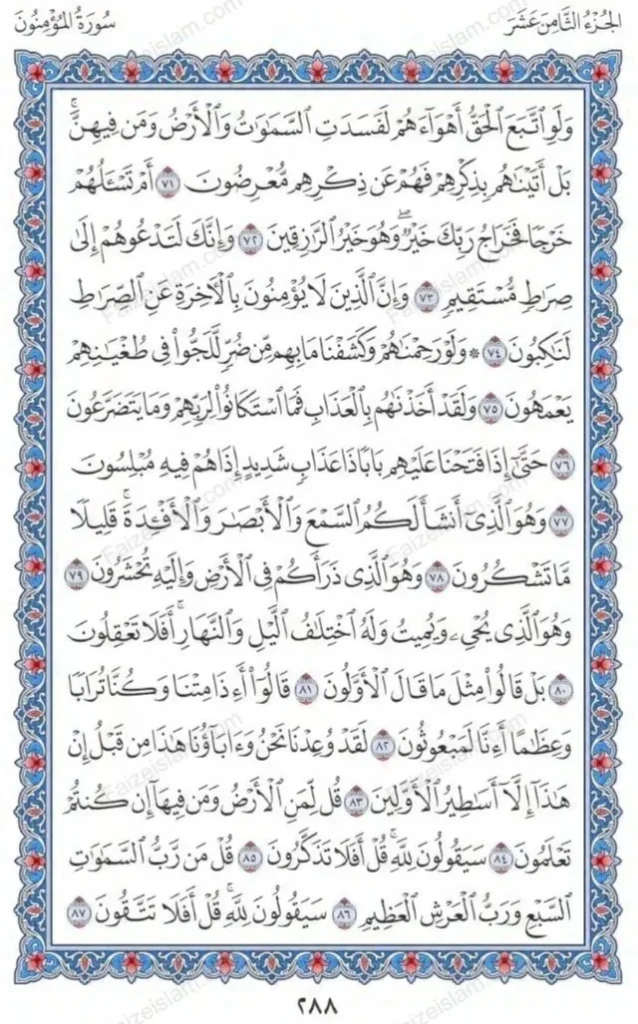 الجُزْءُ الثَّامِنَ عَشَرَ
سُورَةُ المُؤْمِنُونَ
وَلَوِ ٱتَّبَعَ ٱلْحَقُّ أَهْوَآءَهُمْ لَفَسَدَتِ ٱلسَّمَٰوَٰتُ وَٱلْأَرْضُ وَمَن فِيهِنَّ ۚ
بَلْ أَتَيْنَٰهُم بِذِكْرِهِمْ فَهُمْ عَن ذِكْرِهِم مُّعْرِضُونَ ٧١ أَمْ تَسْـَٔلُهُمْ
خَرْجًا فَخَرَاجُ رَبِّكَ خَيْرٌ ۖ وَهُوَ خَيْرُ ٱلرَّٰزِقِينَ ٧٢ وَإِنَّكَ لَتَدْعُوهُمْ إِلَىٰ
صِرَٰطٍ مُّسْتَقِيمٍ ٧٣ وَإِنَّ ٱلَّذِينَ لَا يُؤْمِنُونَ بِٱلْأَخِرَةِ عَنِ ٱلصِّرَٰطِ
لَنَٰكِبُونَ ٧٤ ۞ وَلَوْ رَحِمْنَٰهُمْ وَكَشَفْنَا مَا بِهِم مِّن ضُرٍّ لَّلَجُّوا۟ فِى طُغْيَٰنِهِمْ
يَعْمَهُونَ ٧٥ وَلَقَدْ أَخَذْنَٰهُم بِٱلْعَذَابِ فَمَا ٱسْتَكَانُوا۟ لِرَبِّهِمْ وَمَا يَتَضَرَّعُونَ
٧٦ حَتَّىٰٓ إِذَا فَتَحْنَا عَلَيْهِم بَابًا ذَا عَذَابٍ شَدِيدٍ إِذَا هُمْ فِيهِ مُبْلِسُونَ
٧٧ وَهُوَ ٱلَّذِىٓ أَنشَأَ لَكُمُ ٱلسَّمْعَ وَٱلْأَبْصَٰرَ وَٱلْأَفْـِٔدَةَ ۚ قَلِيلًا
مَّا تَشْكُرُونَ ٧٨ وَهُوَ ٱلَّذِى ذَرَأَكُمْ فِى ٱلْأَرْضِ وَإِلَيْهِ تُحْشَرُونَ ٧٩
وَهُوَ ٱلَّذِى يُحْىِۦ وَيُمِيتُ وَلَهُ ٱخْتِلَٰفُ ٱلَّيْلِ وَٱلنَّهَارِ ۚ أَفَلَا تَعْقِلُونَ
٨٠ بَلْ قَالُوا۟ مِثْلَ مَا قَالَ ٱلْأَوَّلُونَ ٨١ قَالُوٓا۟ أَءِذَا مِتْنَا وَكُنَّا تُرَابًا
وَعِظَٰمًا أَءِنَّا لَمَبْعُوثُونَ ٨٢ لَقَدْ وُعِدْنَا نَحْنُ وَءَابَآؤُنَا هَٰذَا مِن قَبْلُ إِنْ
هَٰذَآ إِلَّآ أَسَٰطِيرُ ٱلْأَوَّلِينَ ٨٣ قُل لِّمَنِ ٱلْأَرْضُ وَمَن فِيهَآ إِن كُنتُمْ
تَعْلَمُونَ ٨٤ سَيَقُولُونَ لِلَّهِ ۚ قُلْ أَفَلَا تَذَكَّرُونَ ٨٥ قُلْ مَن رَّبُّ ٱلسَّمَٰوَٰتِ
ٱلسَّبْعِ وَرَبُّ ٱلْعَرْشِ ٱلْعَظِيمِ ٨٦ سَيَقُولُونَ لِلَّهِ ۚ قُلْ أَفَلَا تَتَّقُونَ ٨٧
٢٨٨
Faizeislam.com